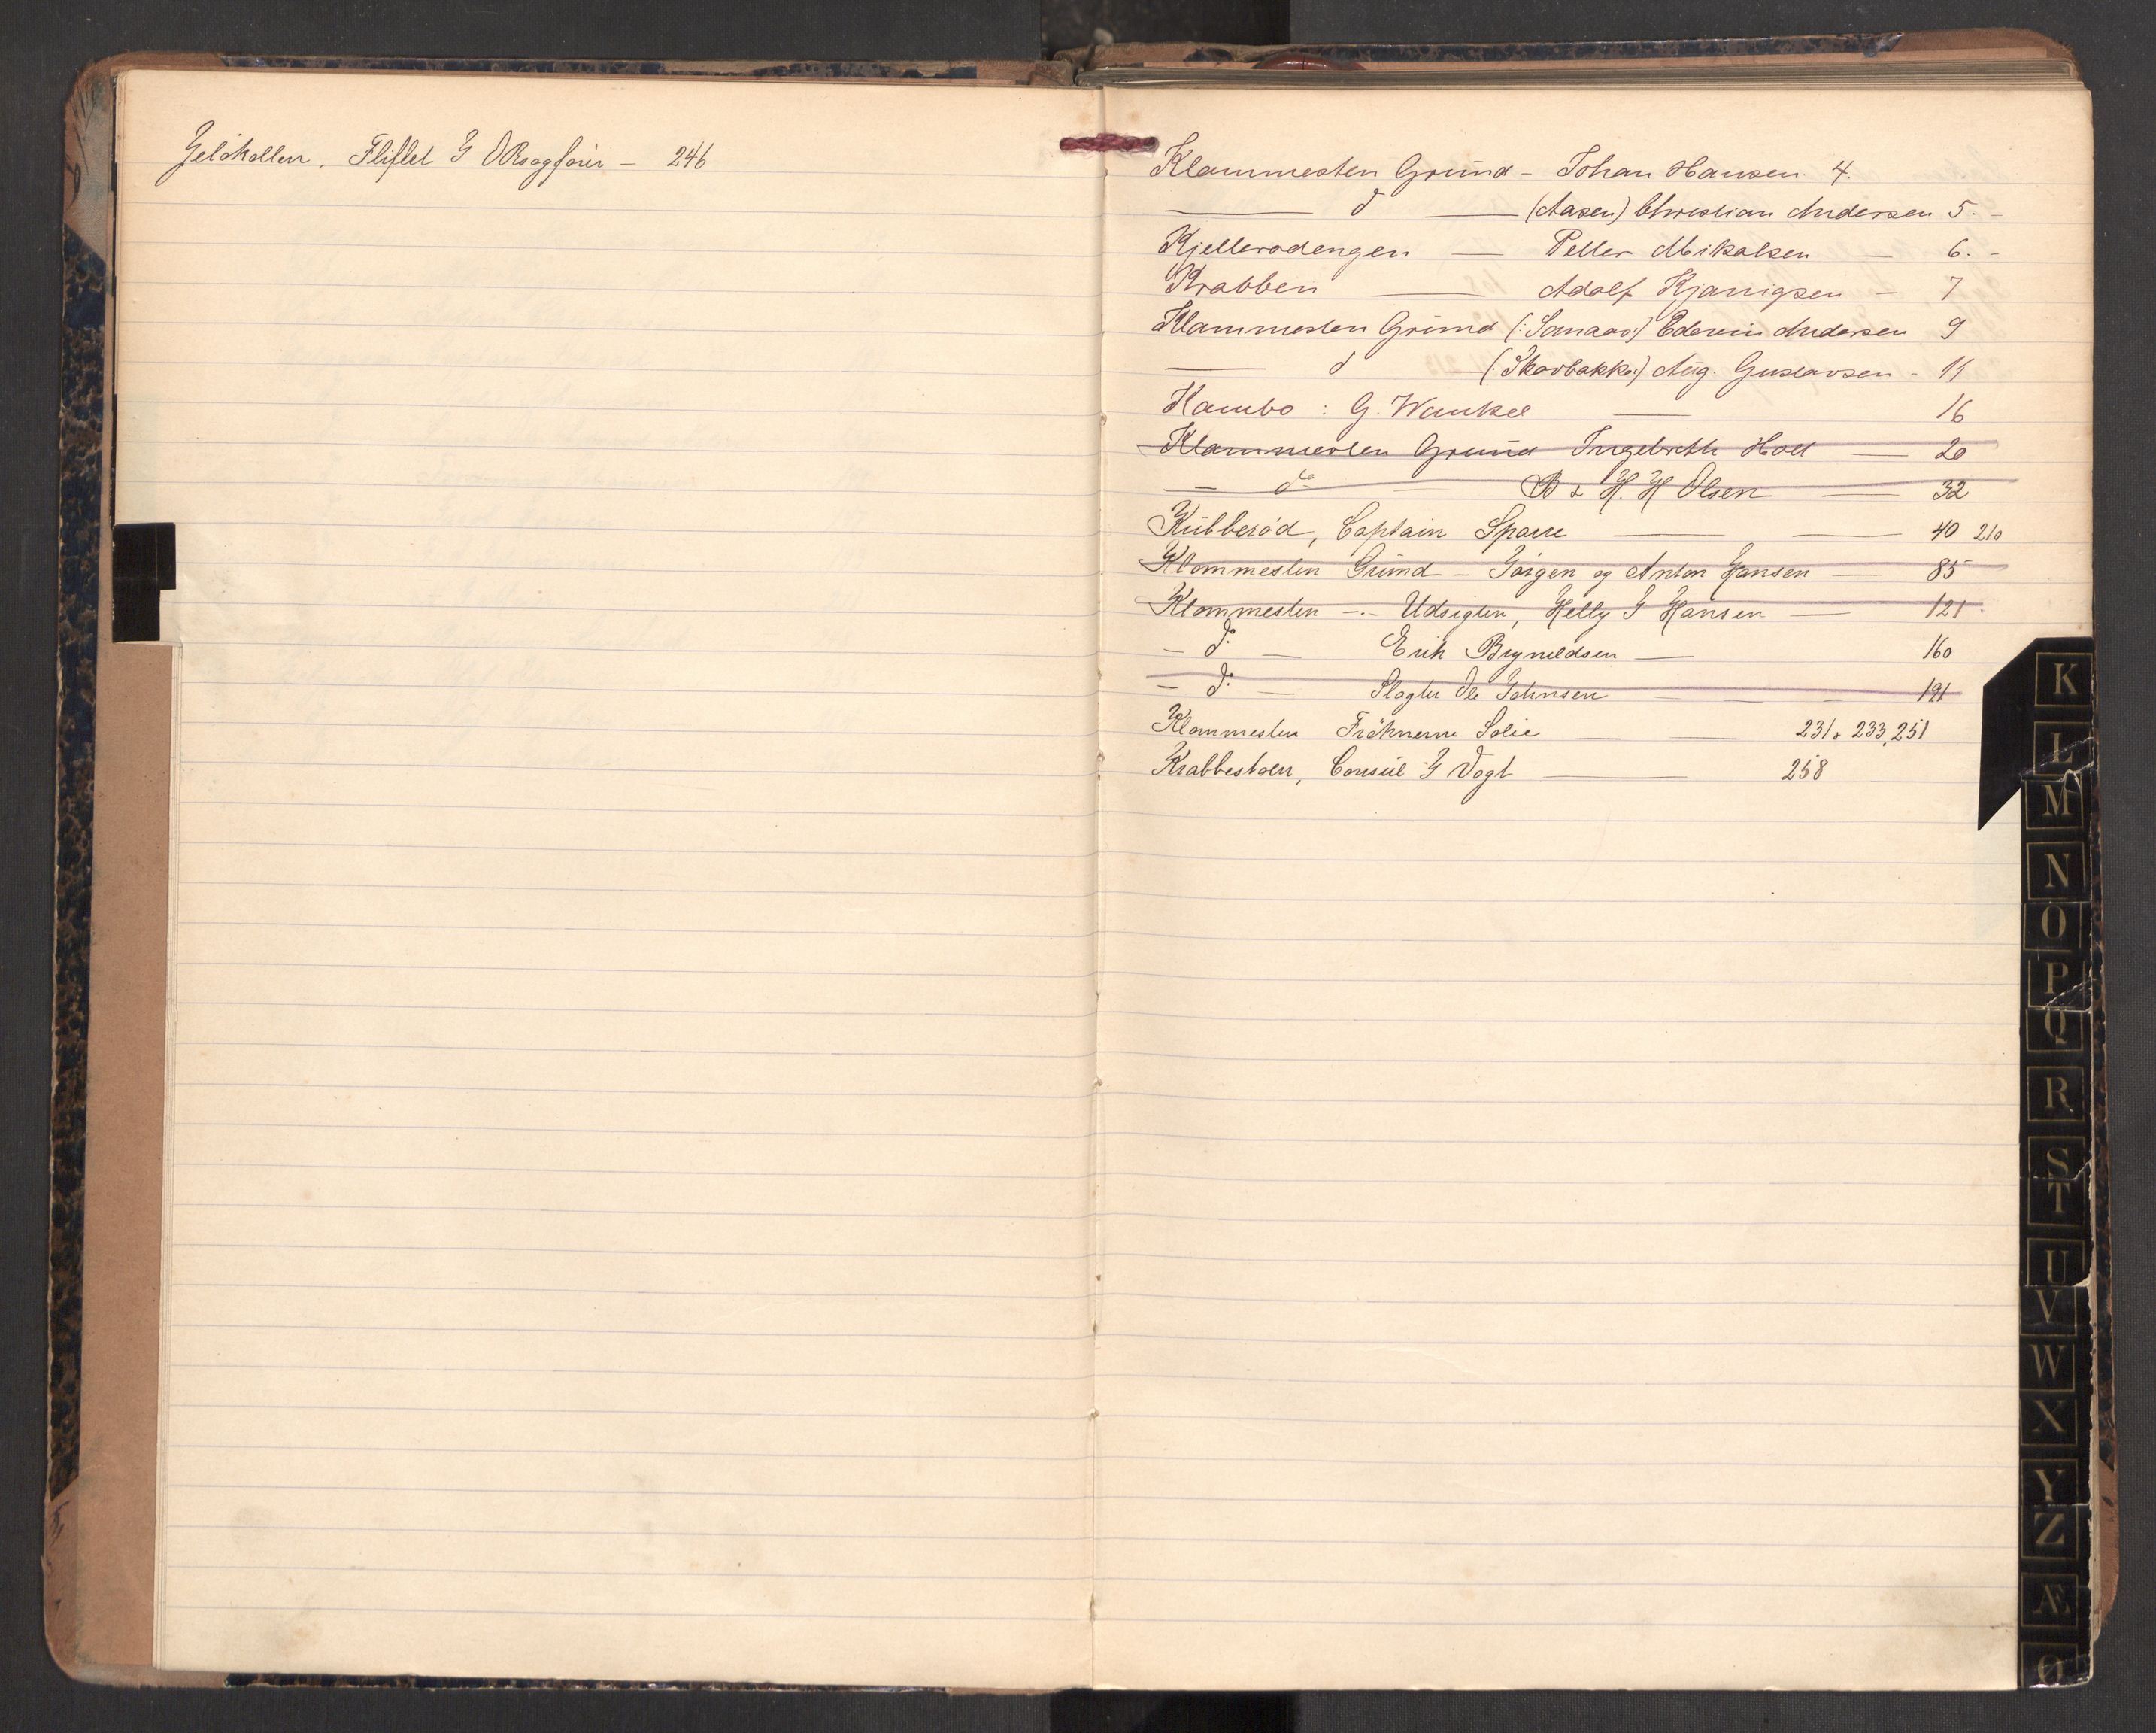 Jelökollen. Fliflet J ORsagförer – 246
Klommesten Grund – Johan Hansen 4.
— d — (Aasen) Christian Andersen 5. –
Kjellerødengen — Petter Mikalsen — 6. –
Krabben — Adolf Kjønigsen – 7
Klommesten Grund (: Sonaas:) Edevin Andersen 9
— d — (: Skovbakke:) Aug. Gustavsen – 11
Kambo : G. Wankel — 16
Klommesten Grund Ingebreth Holt — 20
– do — B & H. H Olsen — 32
Kubberød, Captain Sparre — — 40 210
Klommesten Grund – Jörgen og Anton Hansen — 85
Klommesten –.– Udsigten, Helly J Hansen — 121.
– d: – Erik Bryneldsen — 160
– d: – Slagter Ole Johnsen — – – 191
Klommesten Fröknerne Solie — — 231. 233, 251
Krabbestøen, Consul J Vogt — 258
K
L
M
N
O
P
Q
R
S
T
U
V
W
X
Y
Z
Æ
Ø